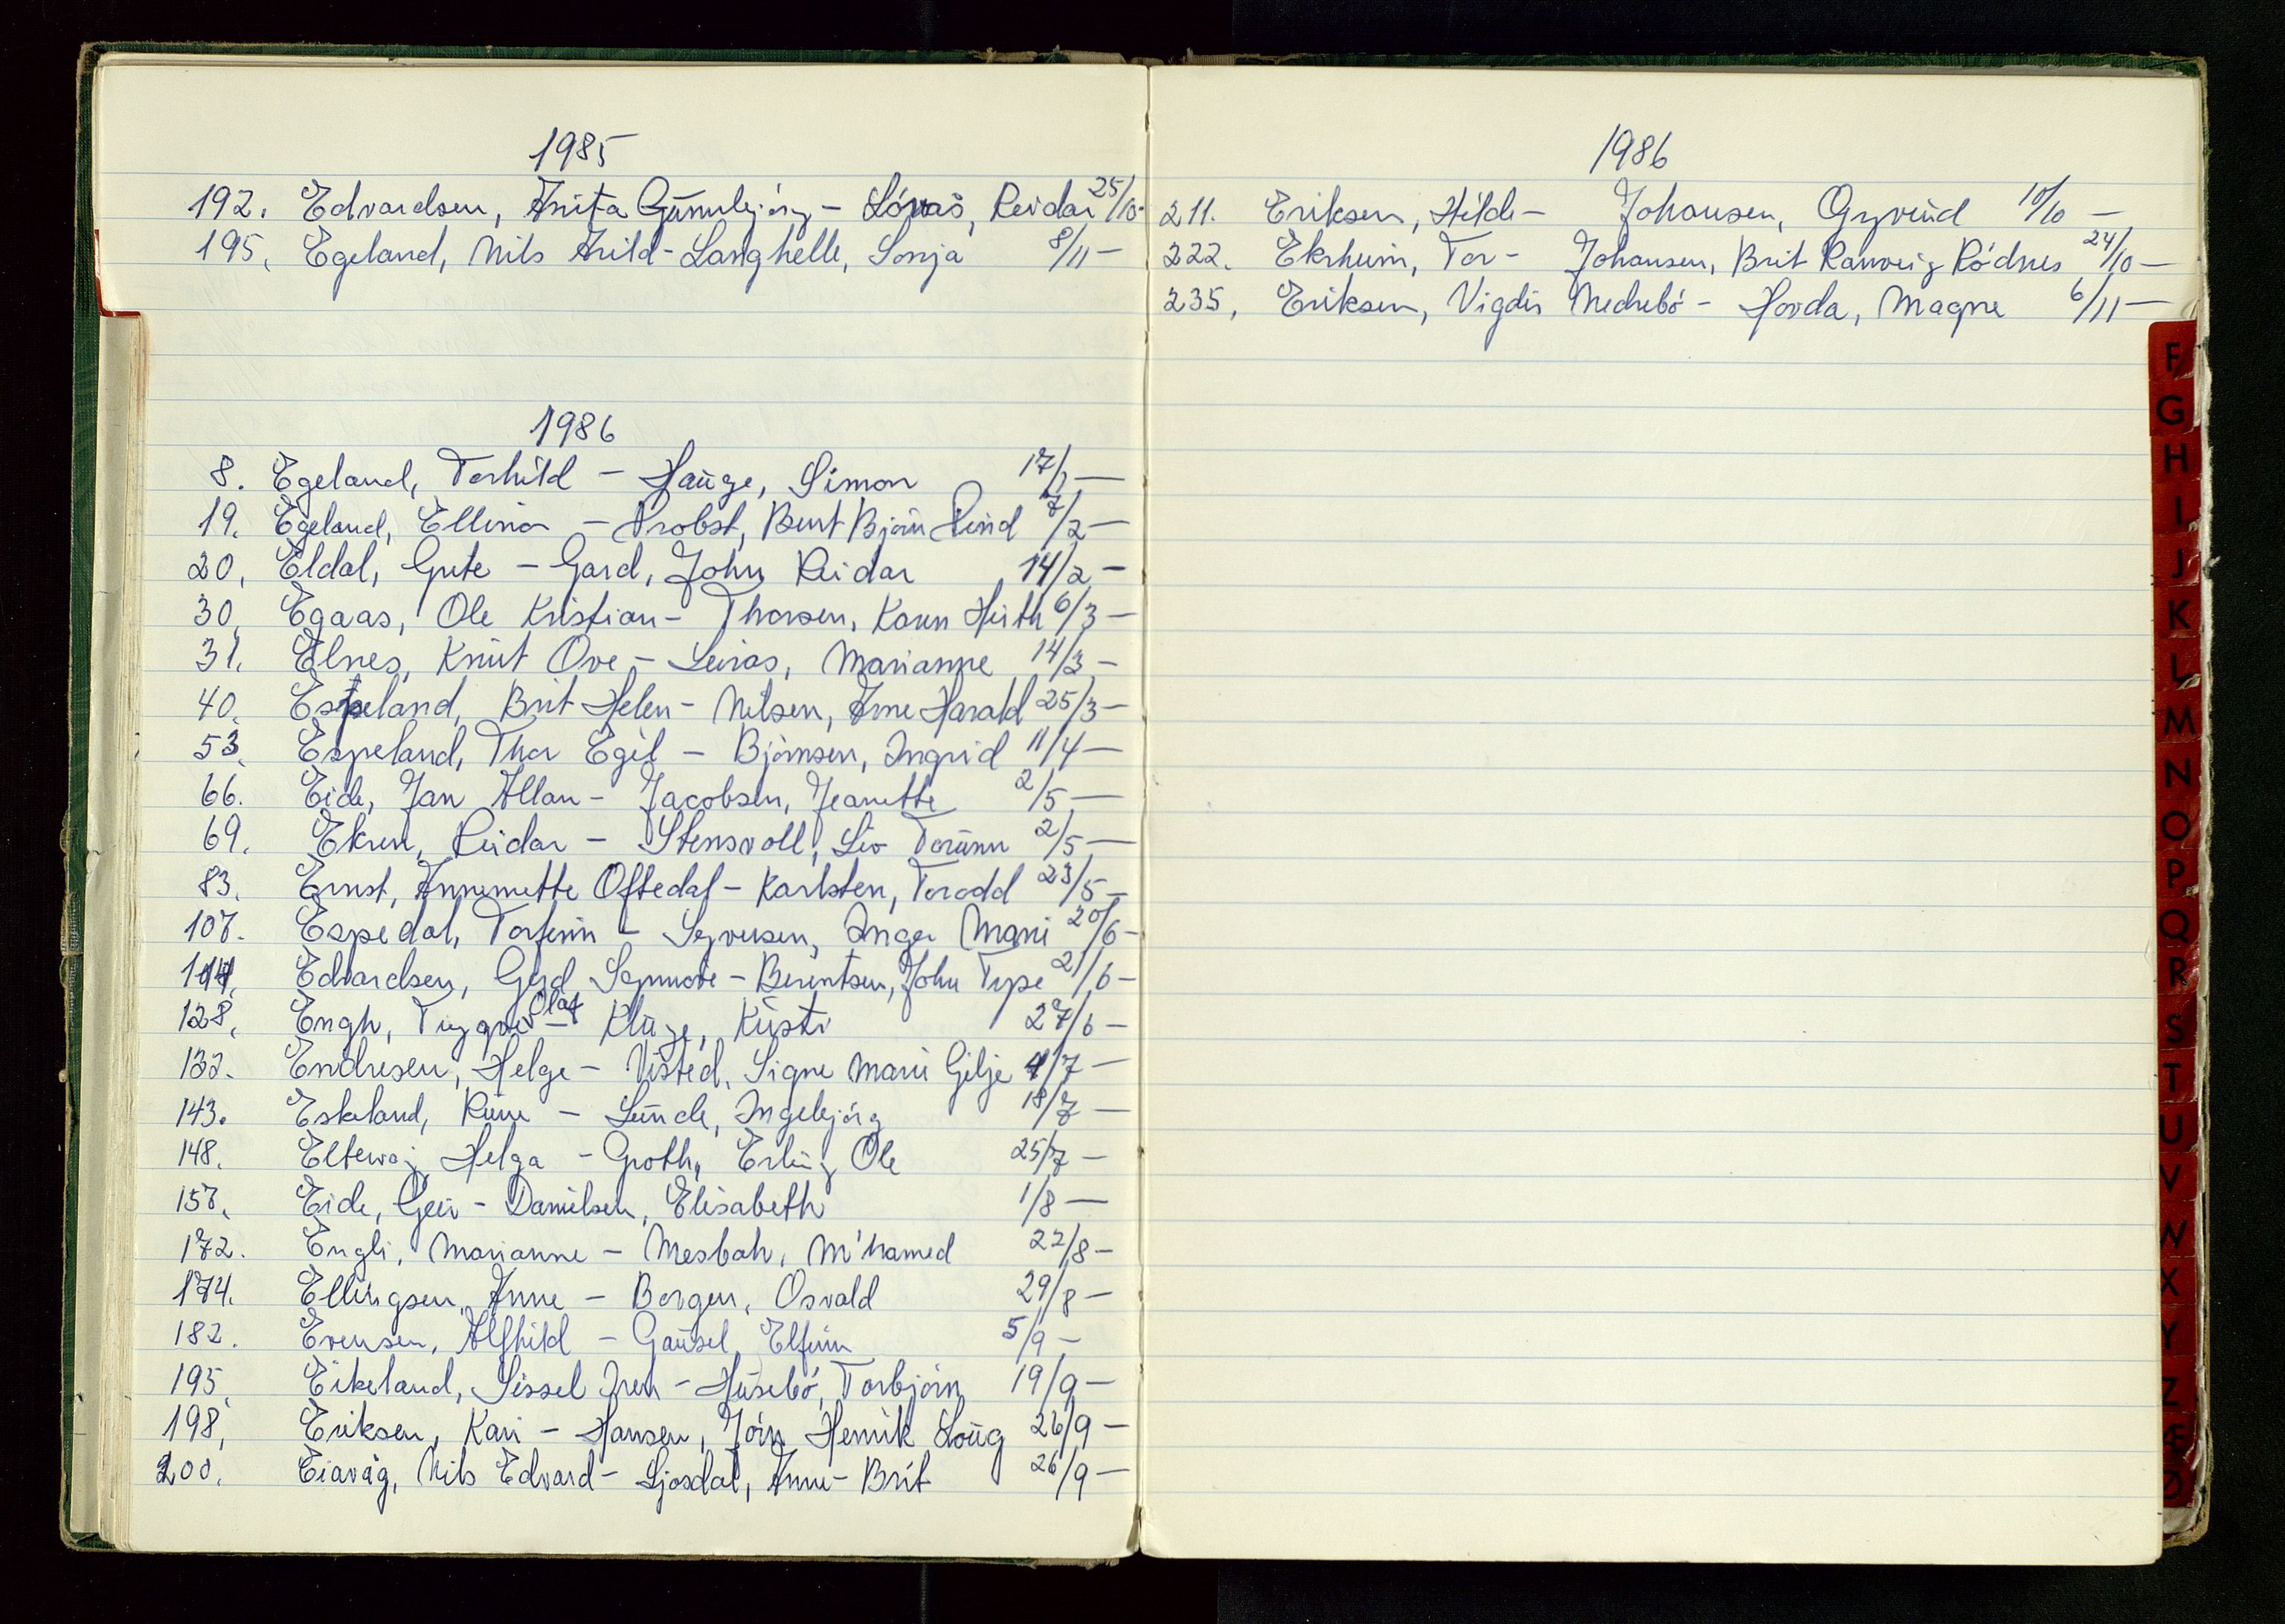 1985
192. Edvardsen, Anita Gunnbjørg - Løvås, Reidar 25/10-
195. Egeland, Nils Arild - Langhelle, Sonja 8/11 -
1986
8. Egeland, Torhild - Hauge, Simon 17/1 -
19. Egeland, Ellinor - Probst, Bent Bjørn 7/2 -
20. Eldal, Grete - Gard, John Reidar 14/2 -
30. Egaas, Ole Kristian - Thorsen, Karen 6/3 -
31. Elnes, Knut Ove - Leiros, Marianne 14/3 -
40. Espeland, Brit Helen - Nilsen, Arne Harald 25/3 -
53. Espeland, Thor Egil - Bjørnsen, Ingrid 11/4 -
66. Eide, Jan Allan - Jacobsen, Jeanette 2/5 -
69. Ekren, Reidar - Stensvoll, Liv Torunn 2/5 -
83. Ernst, Annemette Oftedal - Karlsten, Torodd 23/5 -
107. Espedal, Torfinn - Syversen, Inger Marie 20/6 -
114. Edvardsen, Gerd Synnøve - Berentsen, John Terje 21/6 -
128. Engh, Trygve Olaf - Kluge, Kirsti 27/6 -
132. Endresen, Helge - Visted, Signe Marie Gilje 4/7 -
143. Eskeland, Rune - Lunde, Ingebjørg 18/7 -
148. Helga - Groth, Erling Ole 25/7 -
157. Eide, Geir - Danielsen, Elisabeth 1/8 -
172. Engli, Marianne - Mesbah, M'hamed 22/8 -
174. Ellingsen, Anne - Borgen, Osvald 29/8 -
182. Evensen, Alfhild - Gausel, Elfinn 5/9 -
195. Eikeland, Sissel Iren - Husebø, Torbjørn 19/9 -
198. Eriksen, Kari - Hansen, Jørn Henrik Loug 26/9 -
200. Eiavåg, Nils Edvard - Ljosdal, Anne-Brit 26/9 -
1986
211. Eriksen, Hilde - Johansen, Øyvind 10/10 -
222. Ekrheim, Tor - Johansen, Brit Ranveig Rødnes 24/10 -
235. Eriksen, Vigdis Nedrebø - Hovda, Magne 6/11 -
F
G
H
I
J
K
L
M
N
O
P
Q
R
S
T
U
V
W
X
Y
Z
Æ
Ø